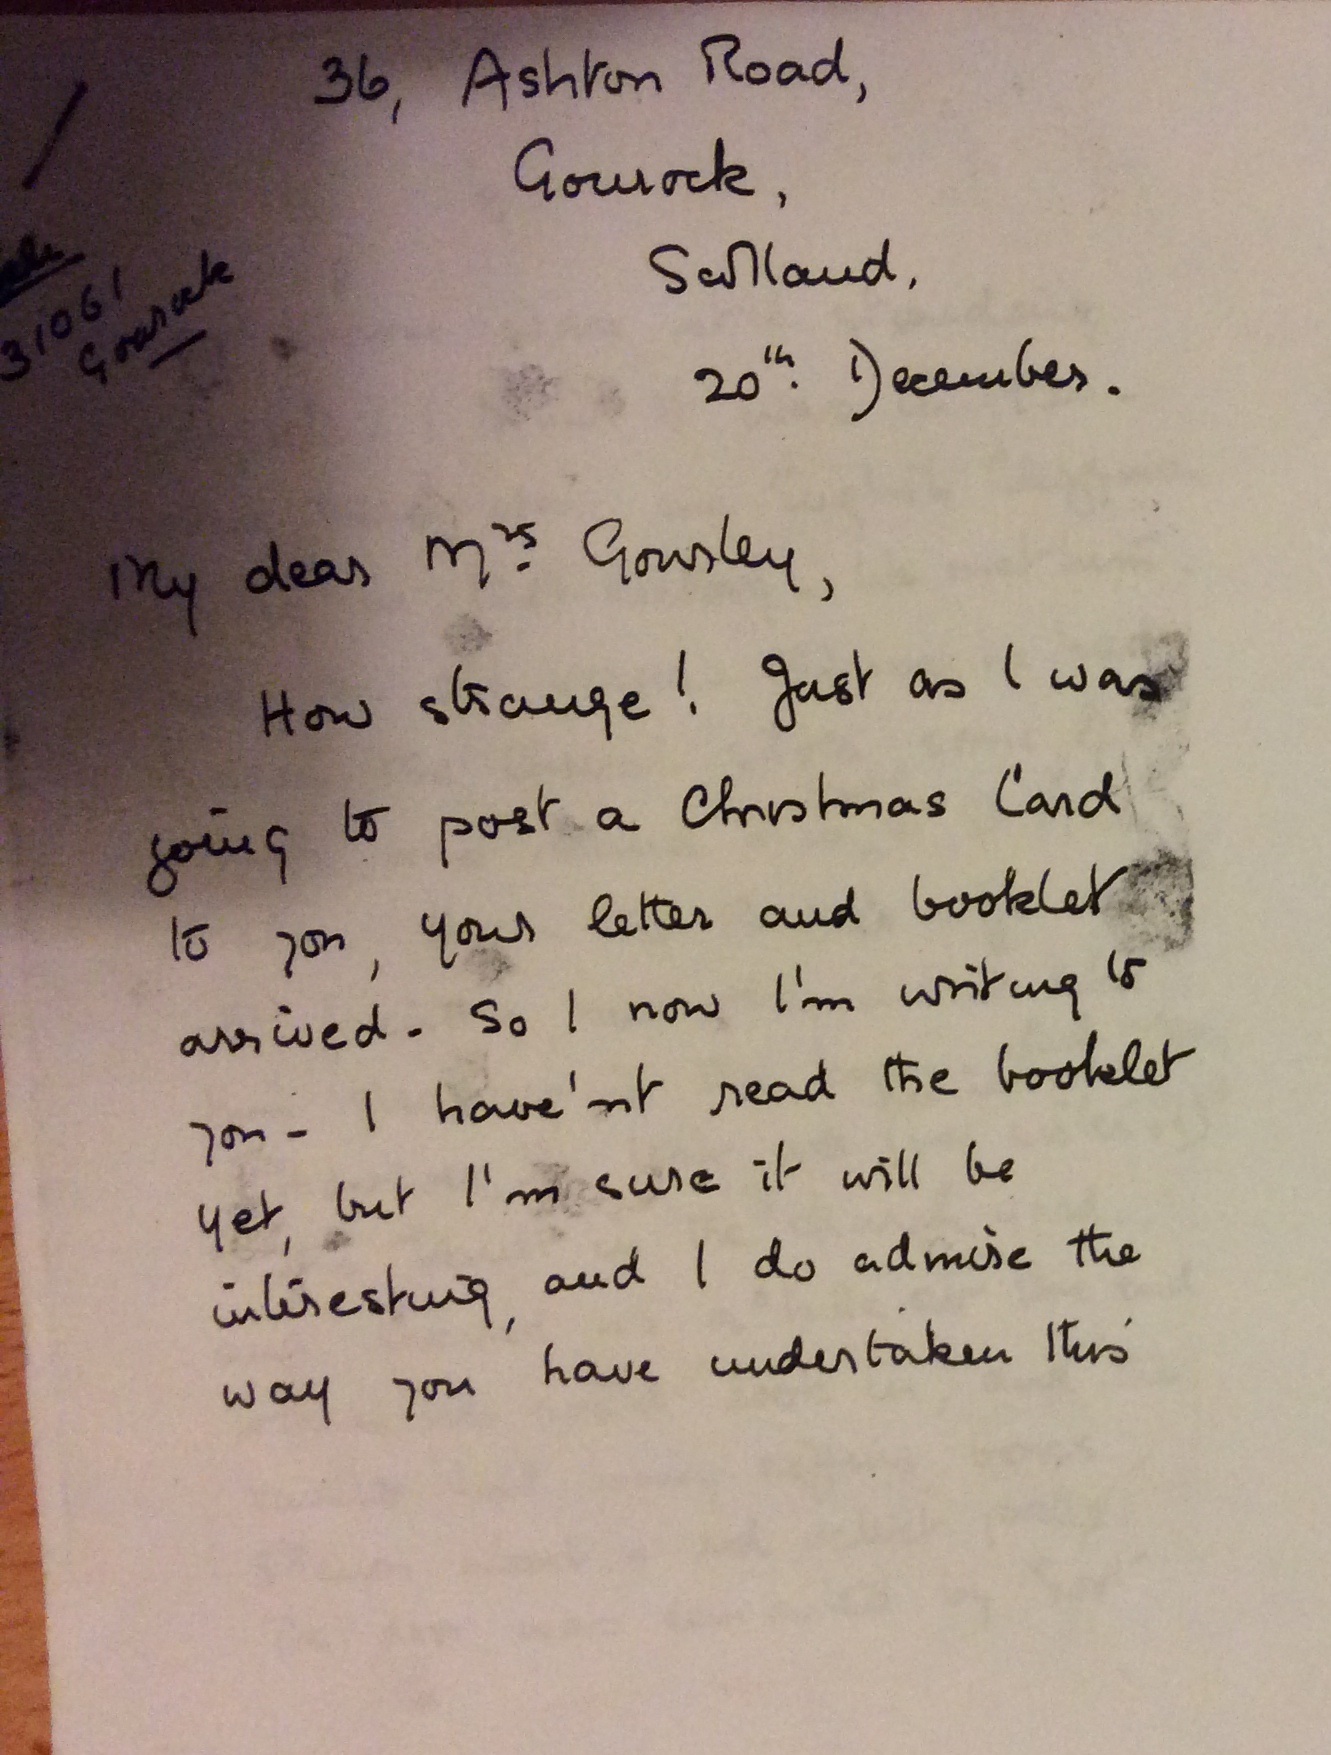 36, Ashton Road,
Gourock,
Scotland.
20th. December.
31061
Gourock
My dear Mrs. Gowsley,
How strange! Just as I was
going to post a Christmas Card
to you, your letter and booklet
arrived. So I now I'm writing to
you - I have'nt read the booklet
yet, but I'm sure it will be
interesting, and I do admire the
way you have undertaken this